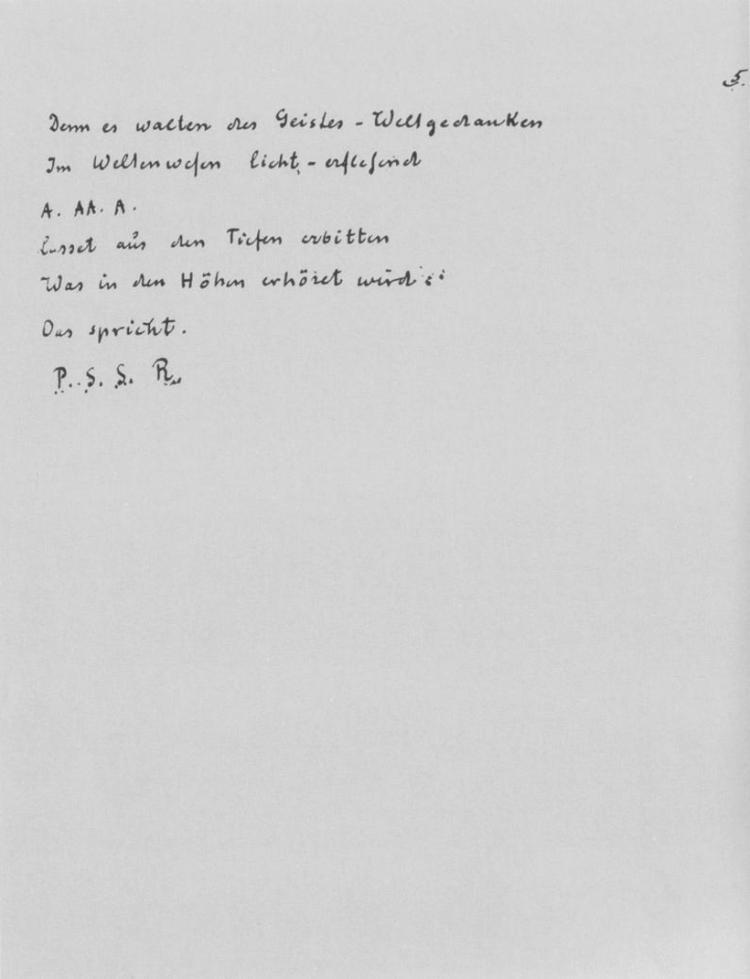 5.
Denn es walten des Geistes-Weltgedanken
Im Weltenwesen licht-erflehend
A. AA. A.
Lasset aus den Tiefen erbitten
Was in den Höhen erhöret wird::
Das spricht.
P. S. S. R.